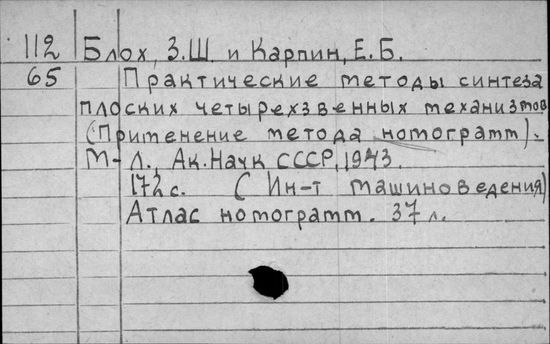 112 Блох, З.Ш. и Карпин, Е.Б.
65 Практические методы синтеза
плоских четырехзвенных механизмов
(Применение метода номограмм).
М-Л., Ак.Наук СССР, 1943.
172 с. (Ин-т машиноведения)
Атлас номограмм. 37 л.